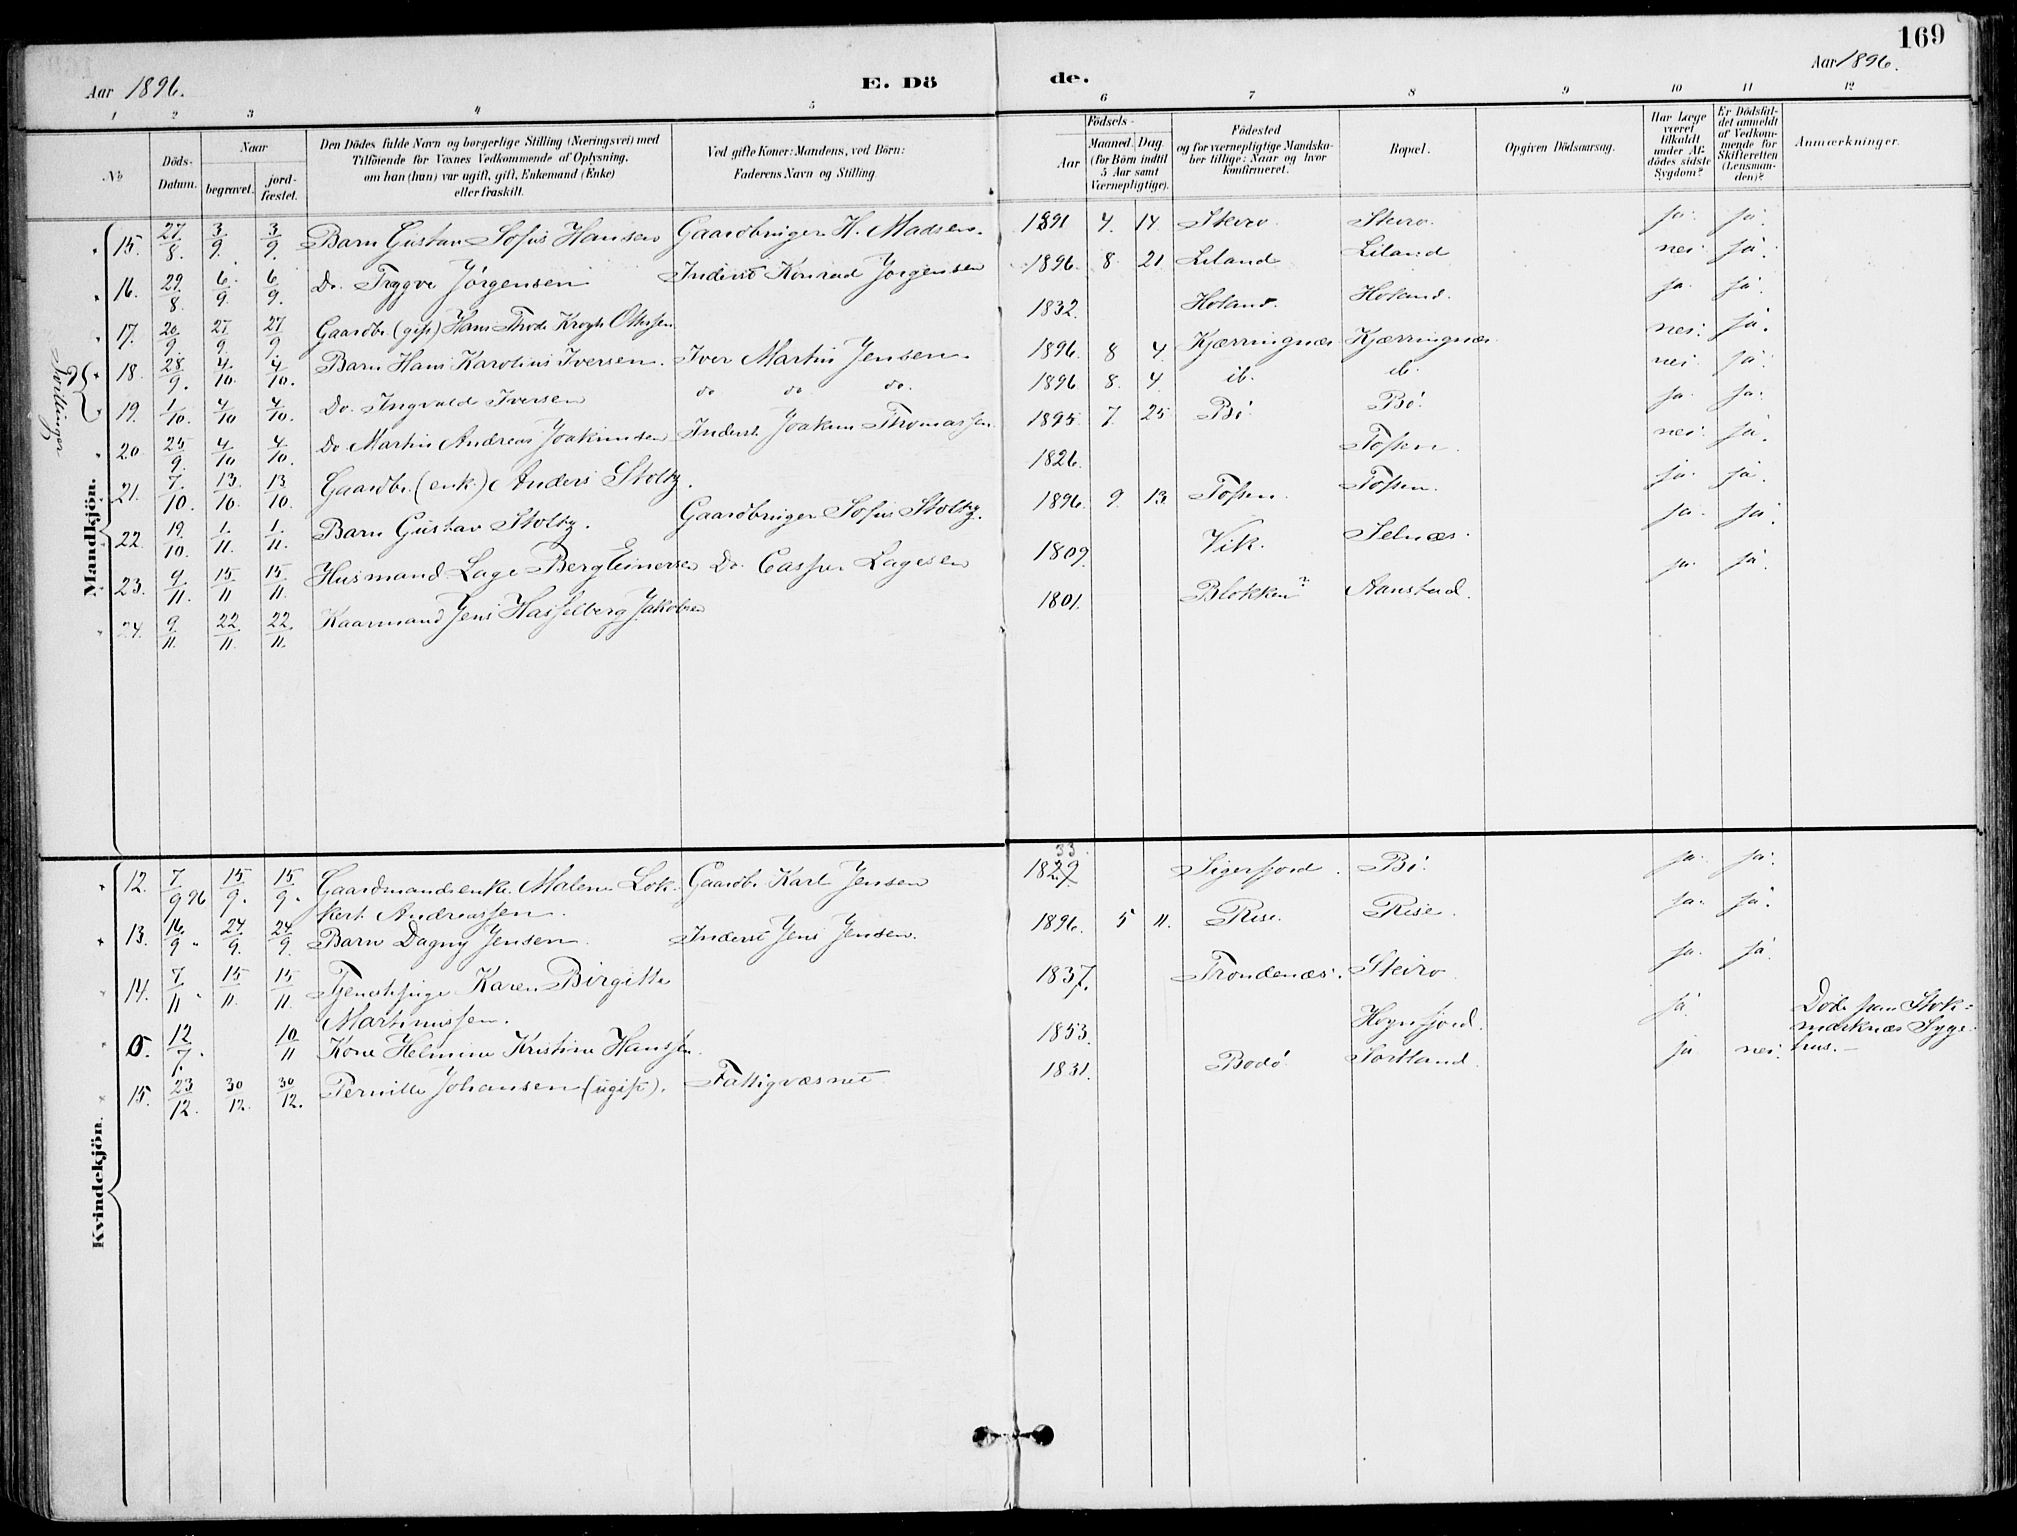 169
Aar 1896. E. Dö de. Aar 1896.
1 2 3 4 5 6 7 8 9 10 11 12
No
Döds-Datum.
Naar
begravet.
jord-fæstet.
Den Dödes fulde Navn og borgerlige Stilling (Næringsvei) med
Tilföiende for Voxnes Vedkommende af Oplysning,
om han (hun) var ugift, gift, Enkemand (Enke)
eller fraskilt.
Ved gifte Koner: Mandens, ved Börn:
Faderens Navn og Stilling.
Födsels-
Aar
Maaned. Dag.
(for Börn indtil
5 Aar samt
Værnepligtige).
Födested
og for værnepligtige Mandska-
ber tillige: Naar og hvor
konfirmeret.
Bopæl.
Opgiven Dödsaarsag.
Har Læge
været
tilkaldt
under Af-
dödes sidste
Sygdom?
Er Dödsfal-
det anmeldt
af Vedkom-
mende for
Skifteretten
(Lensman-
den)?
Anmærkninger.
Mandkjön.
15. 27/8. 3/9. 3/9. Barn Gustav Sofus Hansen Gaardbruger H. Madsen. 1891 4. 14. Steiro Steiro. ja. ja.
16. 29/8. 6/9. 6/9. Do. Trygve Jörgensen Inderst Konrad Jörgensen 1896. 8. 21. Liland Liland nei. ja.
17. 20/9 27/9. 27/9 Gaardbr. (gift) Hans Thode Krogh Ottesen 1832. Holand. Holand. ja. ja.
Tvillinger
18. 28/9. 4/10. 4/10. Barn Hans Karolius Iversen. Iver Martin Jensen. 1896. 8 4. Kjærringnæs Kjærringnæs. nei. ja.
19. 1/10. 4/10 4/10. Do. Ingvald Iversen do do do. 1896 8. 4. ib. ib. nei. ja.
20 25/9. 4/10 4/10. Do Martin Andreas Joakimsen Inderst Joakim Thomassen. 1895. 7. 25 Bö. Bö. ja. ja.
21. 7/10. 13/10. 13/10. Gaardbr. (enk.) Anders Stolty. 1826. Tofsen. nei. ja.
22. 19/10. 1./11. 1./11. Barn Gustav Stolty. Gaardbruger Sofus Stolty. 1896. 9. 13. Tofsen. Tofsen. ja. ja.
23. 9/11. 15/11 15/11. Husmand Lage Berg Einersen Do. Casper Lagesen 1809. Vik. Selnæs. ja. ja.
24. 9/11. 22/11. 22./11. Kaarmand Jens Hasselberg Jakobsen 1801. Blokken? Aanstad. ja. ja.
Kvindekjön.
12. 7/9 96 15/9. 15/9. Gaardmandsenke Malene Lok- Gaardbr. Karl Jensen 1829 33. Sigerfjord. Bö. ja. ja.
kert Andreassen.
13. 16/9 " 27/9. 27/9. Barn Dagny Jensen. Inderst Jens Jensen. 1896. 5 11. Rise. Rise. ja. ja.
14. 7/11 " 15/11. 15/11. Tjenestepige Karen Birgitte 1837. Trondenæs. Steiro. ja. ja.
Martinussen.
0. 12/7. 10/11 Kone Helmine Kristine Hanssen. 1853. Hognfjord. ja. Döde paa Stok-
marknæs Syge-
hus.
15. 23/12. 30/12. 30/12. Pernille Johansen (ugift). Fattigvæsnet 1831. Bodö. Sortland. ja nei.